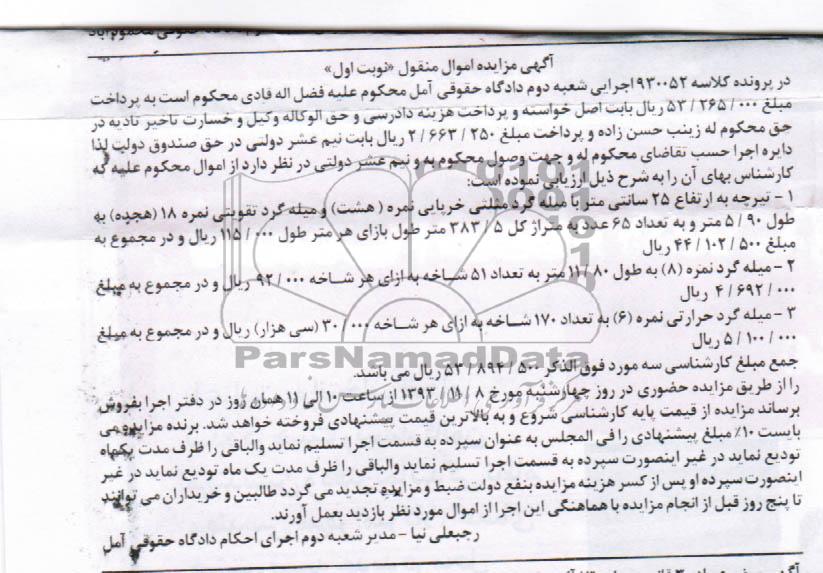 آگهی مزایده اموال منقول «نوبت اول»
در پرونده کلاسه ۹۳۰۰۵۲ اجرایی شعبه دوم دادگاه حقوقی آمل محکوم علیه فضل اله قادی محکوم است به پرداخت
مبلغ ۵۳/۲۶۵/۰۰۰ ریال بابت اصل خواسته و پرداخت هزینه دادرسی و حق الوکاله وکیل و خسارت تاخیر تادیه در
حق محکوم له زینب حسن زاده و پرداخت مبلغ ۲/۶۶۳/۲۵۰ ریال بابت نیم عشر دولتی در حق صندوق دولت لذا
دایره اجرا حسب تقاضای محکوم له و جهت وصول محکوم به و نیم عشر دولتی در نظر دارد از اموال محکوم علیه که
کارشناس بهای آن را به شرح ذیل ارزیابی نموده است:
۱ - تیرچه به ارتفاع ۲۵ سانتی متر با میله گرد مثلثی خرپایی نمره (هشت) و میله گرد تقویتی نمره ۱۸ (هجده) به
طول ۵/۹۰ متر و به تعداد ۶۵ عدد به متراژ کل ۳۸۳/۵ متر طول بازای هر متر طول ۱۱۵/۰۰۰ ریال و در مجموع به
مبلغ ۴۴/۱۰۲/۵۰۰ ریال
۲ - میله گرد نمره (۸) به طول ۱۱/۸۰ متر به تعداد ۵۱ شاخه به ازای هر شاخه ۹۲/۰۰۰ ریال و در مجموع به مبلغ
۴/۶۹۲/۰۰۰ ریال
۳ - میله گرد حرارتی نمره (۶) به تعداد ۱۷۰ شاخه به ازای هر شاخه ۳۰/۰۰۰ (سی هزار) ریال و در مجموع به مبلغ
۵/۱۰۰/۰۰۰ ریال
ParsNamadData
جمع مبلغ کارشناسی سه مورد فوق الذکر ۵۳/۸۹۴/۵۰۰ ریال می باشد.
را از طریق مزایده حضوری در روز چهارشنبه مورخ ۱۳۹۳/۱۱/۸ از ساعت ۱۰ الی ۱۱ همان روز در دفتر اجرا بفروش
برساند مزایده از قیمت پایه کارشناسی شروع و به بالاترین قیمت پیشنهادی فروخته خواهد شد. برنده مزایده می
بایست ۱۰٪ مبلغ پیشنهادی را فی المجلس به عنوان سپرده به قسمت اجرا تسلیم نماید والباقی را ظرف مدت یکماه
تودیع نماید در غیر اینصورت سپرده به قسمت اجرا تسلیم نماید والباقی را ظرف مدت یک ماه تودیع نماید در غیر
اینصورت سپرده او پس از کسر هزینه مزایده بنفع دولت ضبط و مزایده تجدید می گردد طالبین و خریداران می توانند
تا پنج روز قبل از انجام مزایده با هماهنگی این اجرا از اموال مورد نظر بازدید بعمل آورند.
رجبعلی نیا - مدیر شعبه دوم اجرای احکام دادگاه حقوقی آمل